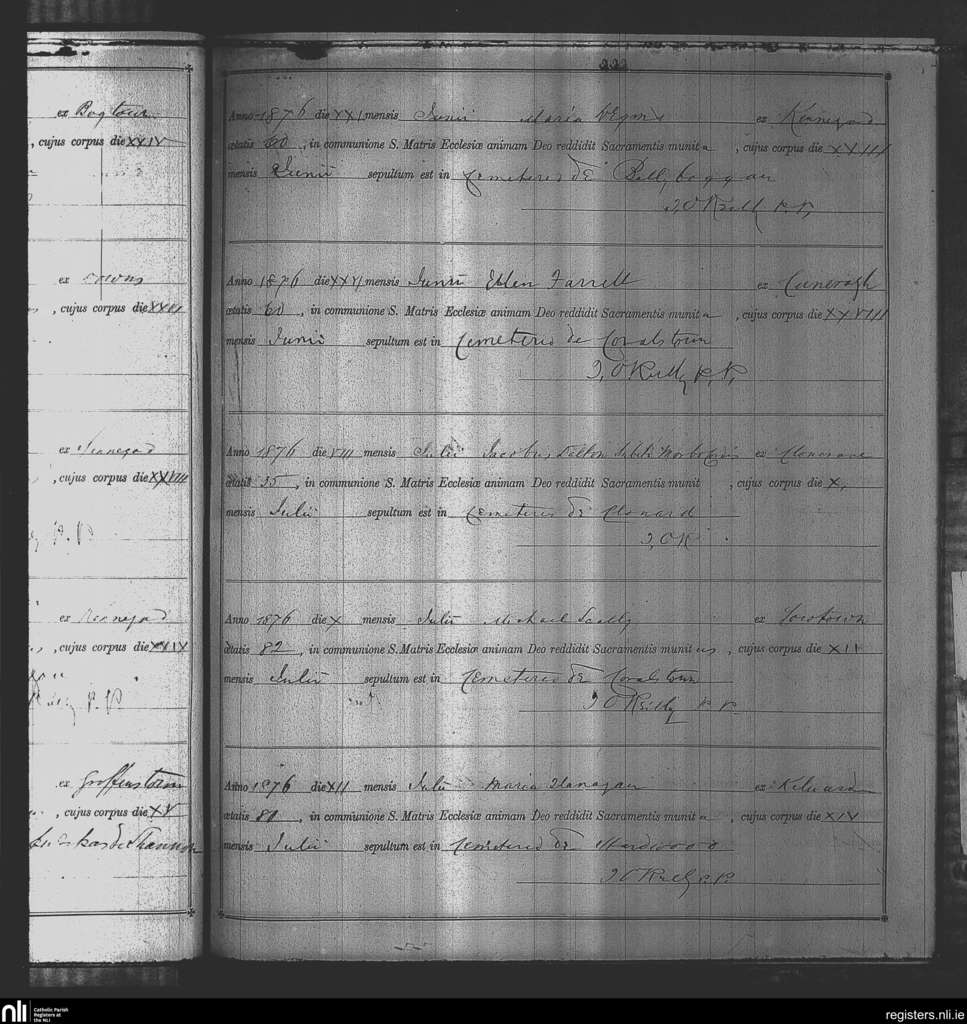 ex Bogtown
, cujus corpus die XXIV
ex
, cujus corpus die XXIII
ex Kinnegad
, cujus corpus die XXVIII
P. P.
ex Kinnegad
, cujus corpus die XXIX
P. P.
ex Griffinstown
, cujus corpus die XV
222
Anno 1876 die XXI mensis Junii Maria ex Kinnegad
ætatis 60, in communione S. Matris Ecclesiæ animam Deo reddidit Sacramentis munita , cujus corpus die XXIII
mensis Junii sepultum est in Cemeterio de Ballyboggan
J, O'Reilly P. P,
Anno 1876 die XXVI mensis Junii Ellen Farrell ex
ætatis 60, in communione S. Matris Ecclesiæ animam Deo reddidit Sacramentis munita , cujus corpus die XXVIII
mensis Junii sepultum est in Cemeterio de Coralstown
J, O'Reilly P. P,
Anno 1876 die VIII mensis Julii Jacobus Dillon ex Clonard
ætatis 35, in communione S. Matris Ecclesiæ animam Deo reddidit Sacramentis munit , cujus corpus die X,
mensis Julii sepultum est in Cemeterio de Clonard
J, OR
Anno 1876 die X mensis Julii Michael Scally ex
ætatis 82, in communione S. Matris Ecclesiæ animam Deo reddidit Sacramentis munitus , cujus corpus die XII
mensis Julii sepultum est in Cemeterio de Coralstown
J O'Reilly P. P.
Anno 1876 die XII mensis Julii Maria Flanagan ex Kilwarden
ætatis 80, in communione S. Matris Ecclesiæ animam Deo reddidit Sacramentis munita , cujus corpus die XIV
mensis Julii sepultum est in Cemeterio de Hardwood
J O'Reilly P. P.
nli Catholic Parish Registers at the NLI
registers.nli.ie